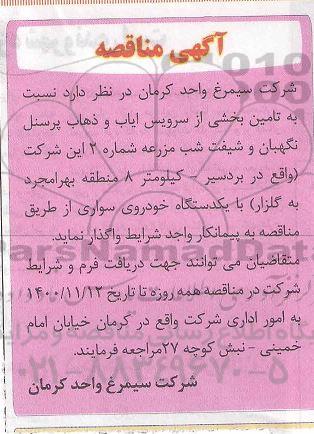 آگهی مناقصه
شرکت سیمرغ واحد کرمان در نظر دارد نسبت
به تامین بخشی از سرویس ایاب و ذهاب پرسنل
نگهبان و شیفت شب مزرعه شماره ۲ این شرکت
(واقع در بردسیر - کیلومتر ۸ منطقه بهرامجرد
به گلزار) با یکدستگاه خودروی سواری از طریق
مناقصه به پیمانکار واجد شرایط واگذار نماید.
متقاضیان می توانند جهت دریافت فرم و شرایط
شرکت در مناقصه همه روزه تا تاریخ ۱۴۰۰/۱۱/۱۲
به امور اداری شرکت واقع در کرمان خیابان امام
خمینی - نبش کوچه ۲۷مراجعه فرمایند.
شرکت سیمرغ واحد کرمان
۰۲۱-۸۸۳۴۹۶۷۰-۵